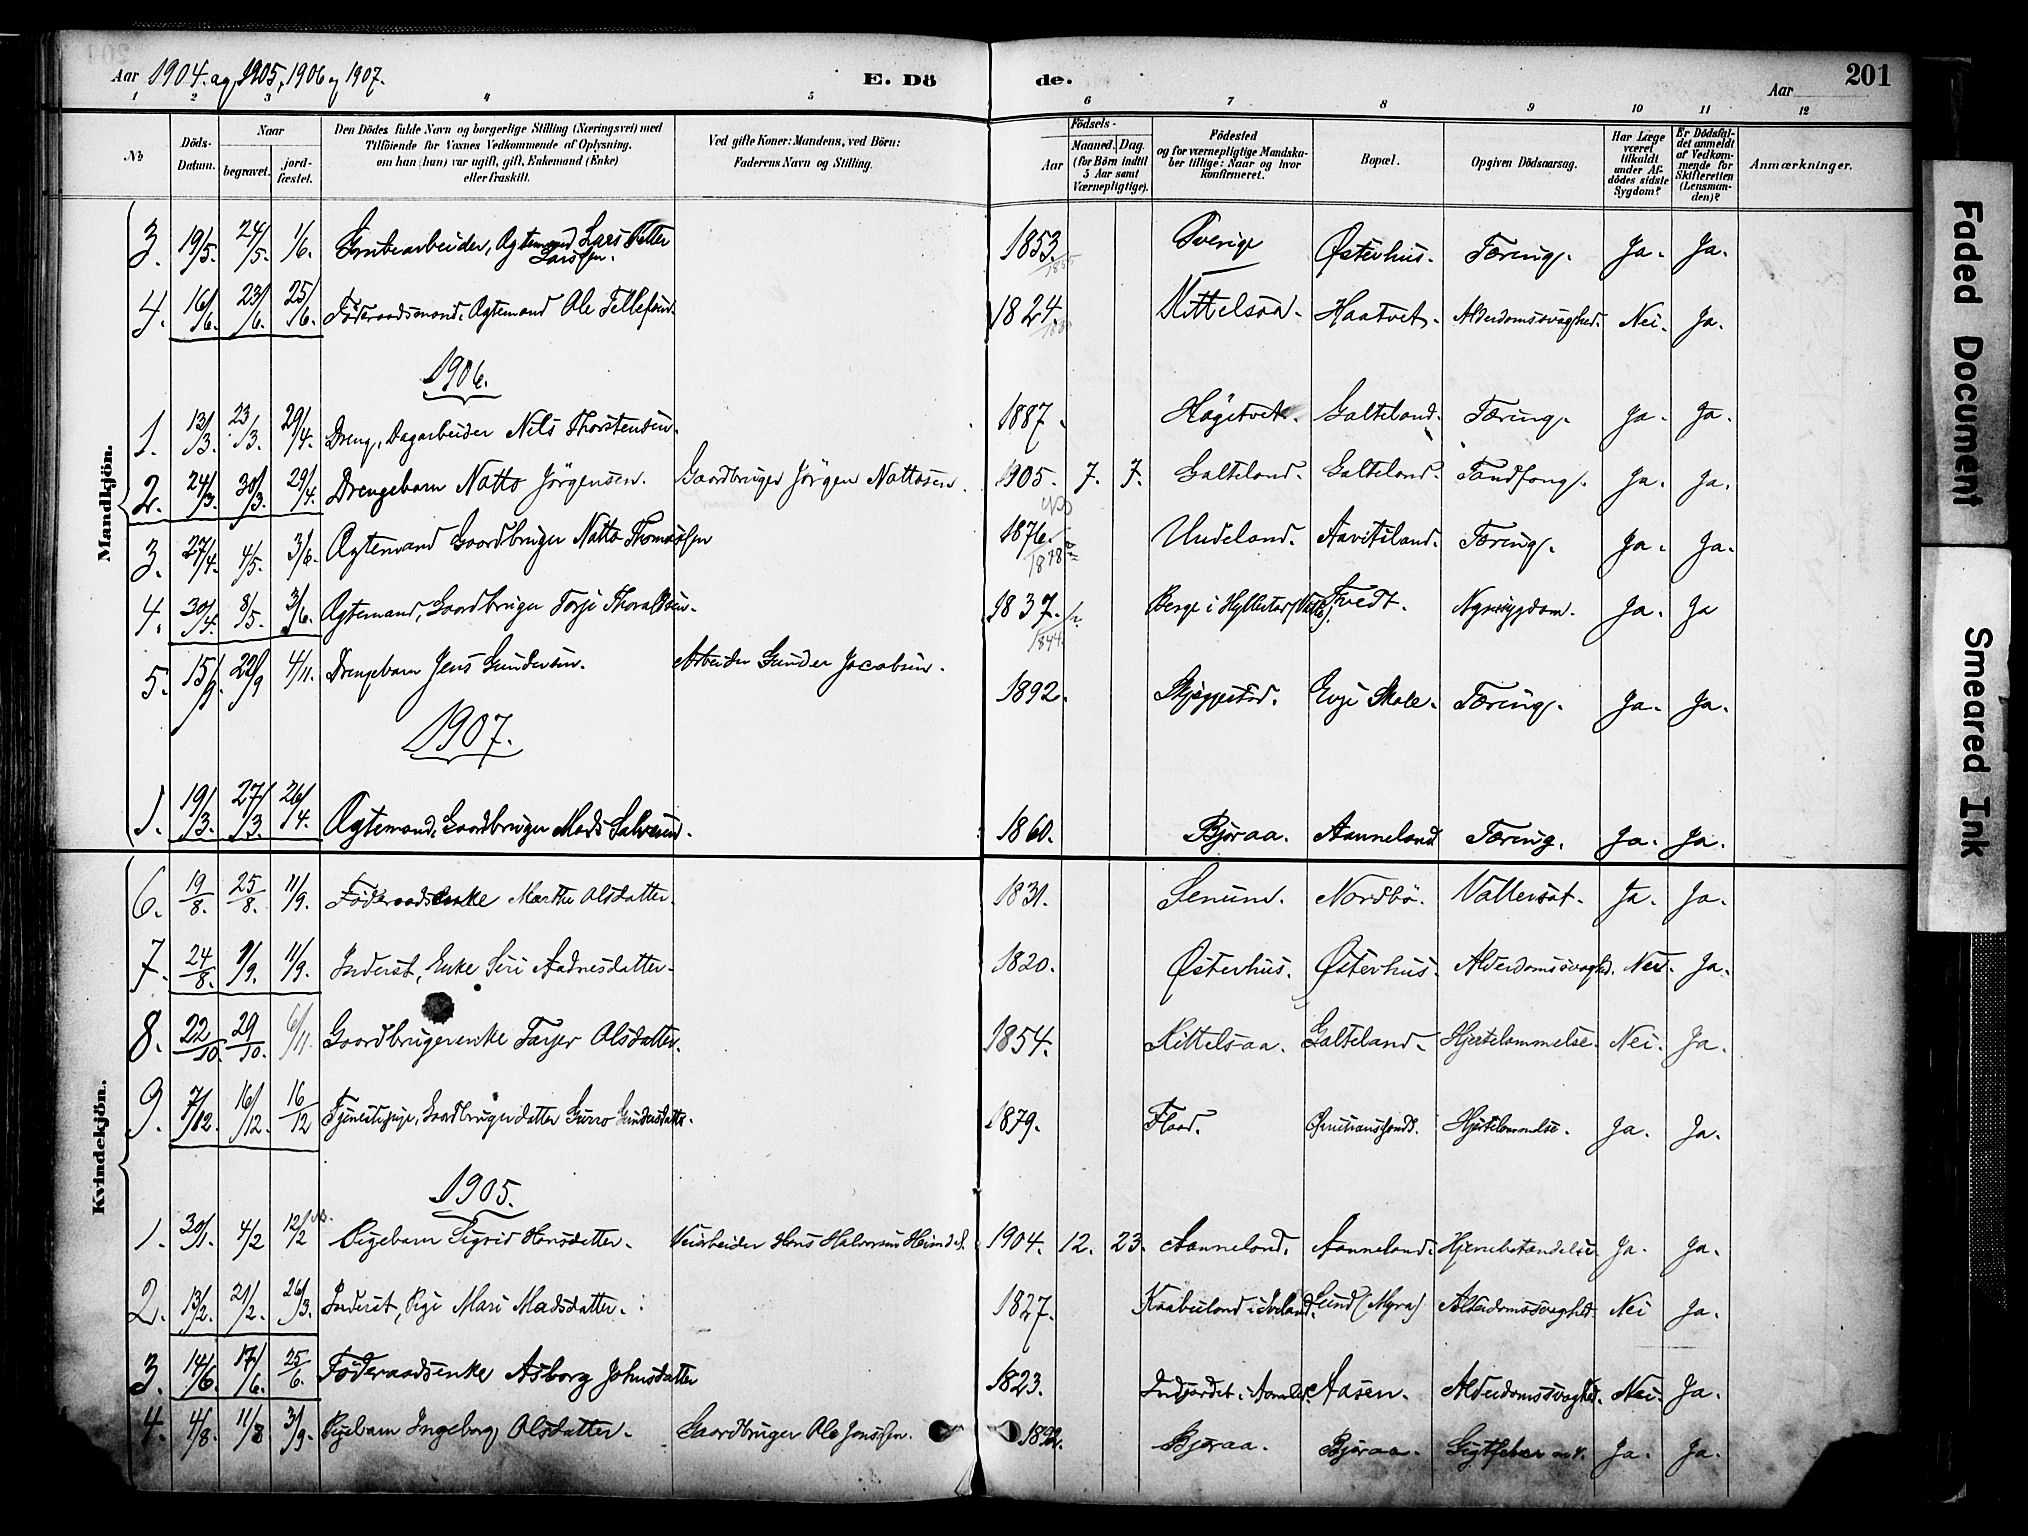 Aar 1904. og 1905, 1906 og 1907. E. Dö de. Aar 201
1 2 3 4 5 6 7 8 9 10 11 12
No Döds-Datum. Naar begravet. jord-fæstet. Den Dödes fulde Navn og borgerlige Stilling (Næringsvei) med Tilföiende for Voxnes Vedkommende af Oplysning, om han (hun) var ugift, gift, Enkemand (Enke) eller fraskilt. Ved gifte Koner: Mandens, ved Börn: Faderens Navn og Stilling. Födsels- Aar Maaned. Dag. (for Börn indtil 5 Aar samt Værnepligtige). Födested og for værnepligtige Mandska-ber tillige: Naar og hvor konfirmeret. Bopæl. Opgiven Dödsaarsag. Har Læge været tilkaldt under Af-dödes sidste Sygdom? Er Dödsfal-det anmeldt af Vedkom-mende for Skifteretten (Lensman-den)? Anmærkninger.
Mandkjön.
3. 19/5. 24/5. 1/6. Grubearbeider, Ægtemand Lars Petter Larssen. 1853. Sverige Østerhus. Tæring. Ja. Ja.
4. 16/6. 23/6. 25/6. Föderaadsmand, Ægtemand Ole Tellefsen. 1824. Kittelsaa. Haatvet. Alderdomssvaghed. Nei. Ja.
1906.
1. 13/3. 23/3. 29/4. Dreng, Dagarbeider Nils Thorstensen. 1887. Högetveit. Galteland. Tæring. Ja. Ja.
2. 24/3. 30/3. 29/4. Drengebarn Natto Jörgensen. Gaardbruger Jörgen Nattosen. 1905. 7. 7. Galteland. Galteland. Tandfang. Ja. Ja.
3. 27/4. 4/5. 3/6. Ægtemand Gaardbruger Natto Thomassen 1876. 1878 Undeland. Aavitsland. Tæring. Ja. Ja.
4. 30/4. 8/5. 3/6. Ægtemand, Gaardbruger Torje Thoraldsen. 1837. 1844 Berge i Hyllestad (Valle). Tvedt. Nyresygdom. Ja. Ja
5. 15/9. 22/9 4/11. Drengebarn Jens Gundersen. Arbeider Gunder Jacobsen. 1892. Skjeggestad. Evje Mole. Tæring. Ja. Ja.
1907.
1. 19/3. 27/3. 26/4. Ægtemand, Gaardbruger Mads Salvesen. 1860. Bjoraa. Aanneland Tæring. Ja. Ja.
Kvindekjön.
6. 19/8. 25/8. 11/9. Föderaadsenke Marthe Olsdatter. 1831. Senum. Nordbö. Vattersot. Ja. Ja.
7. 24/8. 9/9. 11/9. Inderst, Enke Siri Aadnesdatter. 1820. Østerhus. Østerhus. Alderdomssvaghed. Nei. Ja.
8. 22/10. 29/10. 6/11. Gaardbrugerenke Tarjer Olsdatter. 1854. Kittelsaa. Galteland. Hjertelammelse. Nei. Ja.
9. 7/12. 16/12. 16/12 Tjenestepige, Gaardbrugerdatter Gurro Gundersdatter. 1879. Flaad. Christianssands. Hjertelammelse. Ja. Ja.
1905.
1. 30/1. 4/2 12/2 Pigebarn Sigrid Hansdatter. Veiarbeider Hans Halvorsen Heimdal. 1904. 12. 23. Aanneland. Aanneland. Hjernebetændelse. Ja. Ja.
2. 13/2. 21/2. 26/3. Inderst, Pige Mari Madsdatter. 1827. Kaabuland i Iveland. Lund (Myra) Alderdomssvaghed. Nei Ja.
3. 14/6. 17/6. 25/6. Föderaadsenke Asborg Johnsdatter 1823. Aasen. Alderdomssvaghed. Nei. Ja.
4. 4/8. 11/8 3/9. Pigebarn Ingeborg Olsdatter. Gaardbruger Ole Jonssen. Bjoraa. Bjoraa. Gigtfeber Ja. Ja.
Faded Document
Smeared Ink